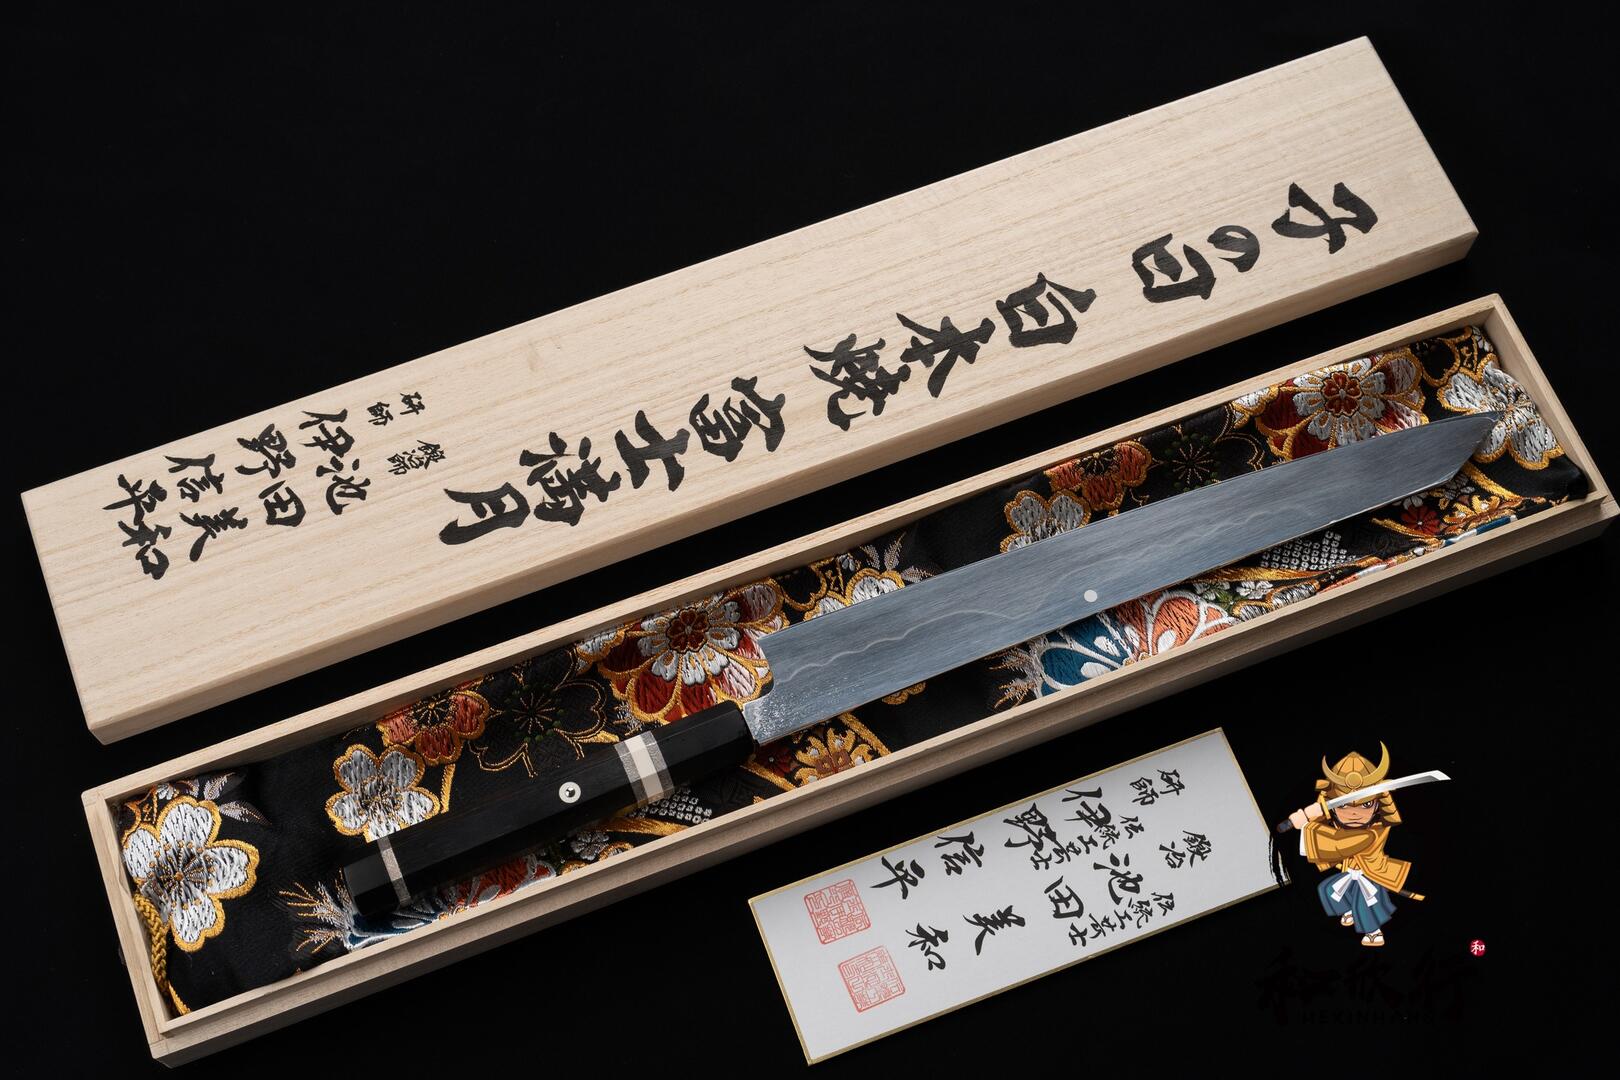 子の日 白本焼 富士満月
鍛冶師 池田美和
研師 伊野信平
鍛冶 伝統工芸士 池田美和
研師 伝統工芸士 伊野信平
和
和欣行
HEXINHANG